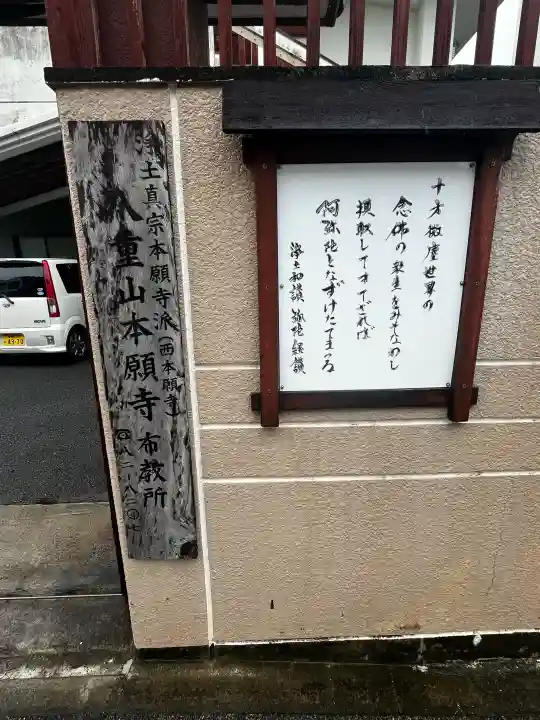 十方微塵世界の
念佛の衆生をみそなわし
摂取してすてざれば
阿弥陀となずけたてまつる
浄土和讃 弥陀経讃
浄土真宗本願寺派(西本願寺)
八重山本願寺 布教所
MOVE
43-70